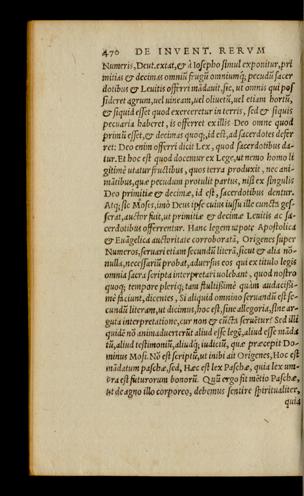 470 DE INVENT. RERVM
Numeris, Deut. extat, & à Iosepho simul exponitur, pri
mitias & decimas omniũ frugũ omniumq; pecudũ sacer
dotibus & Leuitis offerri mãdauit, sic, ut omnis qui pos
sideret agrum, uel uineam, uel oliuetũ, uel etiam hortũ,
& siquid esset quod exerceretur in terris, sed & siquis
pecuaria haberet, is offerret ex illis Deo omne quod
primũ esset, & decimas quoq;, id est, ad sacerdotes defer
ret: Deo enim offerri dicit Lex, quod sacerdotibus da-
tur. Et hoc est quod docemur ex Lege, ut nemo homo li
gitimè utatur fructibus, quos terra produxit, nec ani-
mãtibus, quæ pecudum protulit partus, nisi ex singulis
Deo primitiæ & decimæ, id est, sacerdotibus dentur.
Atq; sic Moses, imò Deus ipse cuius iussu ille cuncta ges-
serat, auctor fuit, ut primitiæ & decimæ Leuitis ac sa-
cerdotibus offerrentur. Hanc legem utpote Apostolica
& Euãgelica auctoritate corroboratã, Origenes super
Numeros, seruari etiam secundũ literã, sicut & alia nõ-
nulla, necessariũ probat, aduersus eos qui ex titulo legis
omnia sacra scripta interpretari uolebant, quod nostro
quoq; tempore pleriq; tam stultißimè quim audacißi-
mè faciunt, dicentes, Si aliquid omnino seruandũ est se-
cundũ literam, ut dicimus, hoc est, sine allegoria, sine ar-
guta interpretatione, cur non & cũcta seruẽtur? Sed illi
quidẽ nõ animaduerterũt aliud esse legẽ, aliud esse mãda
tũ, aliud testimoniũ, aliudq; iudiciũ, quæ præcepit Do-
minus Mosi. Nõ est scriptũ, ut inhi ait Origenes, Hoc est
mãdatum paschæ, sed, Hæc est lex Paschæ, quia lex um-
bra est futurorum bonorũ. Quũ ergo fit mẽtio Paschæ,
ut de agno illo corporeo, debemus sentire spiritualiter,
quia